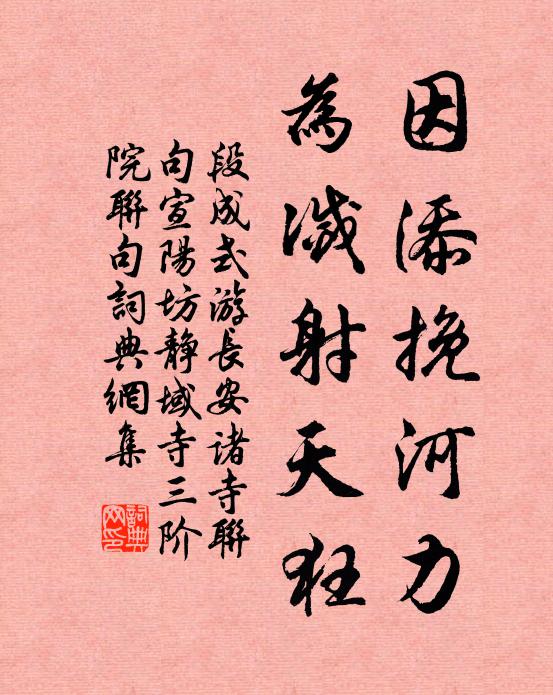 因添挽河力
為滅射天狂
段成式游長安诸寺聯
句宣陽坊静域寺三阶
院聯句詞典網集
詞典
网印